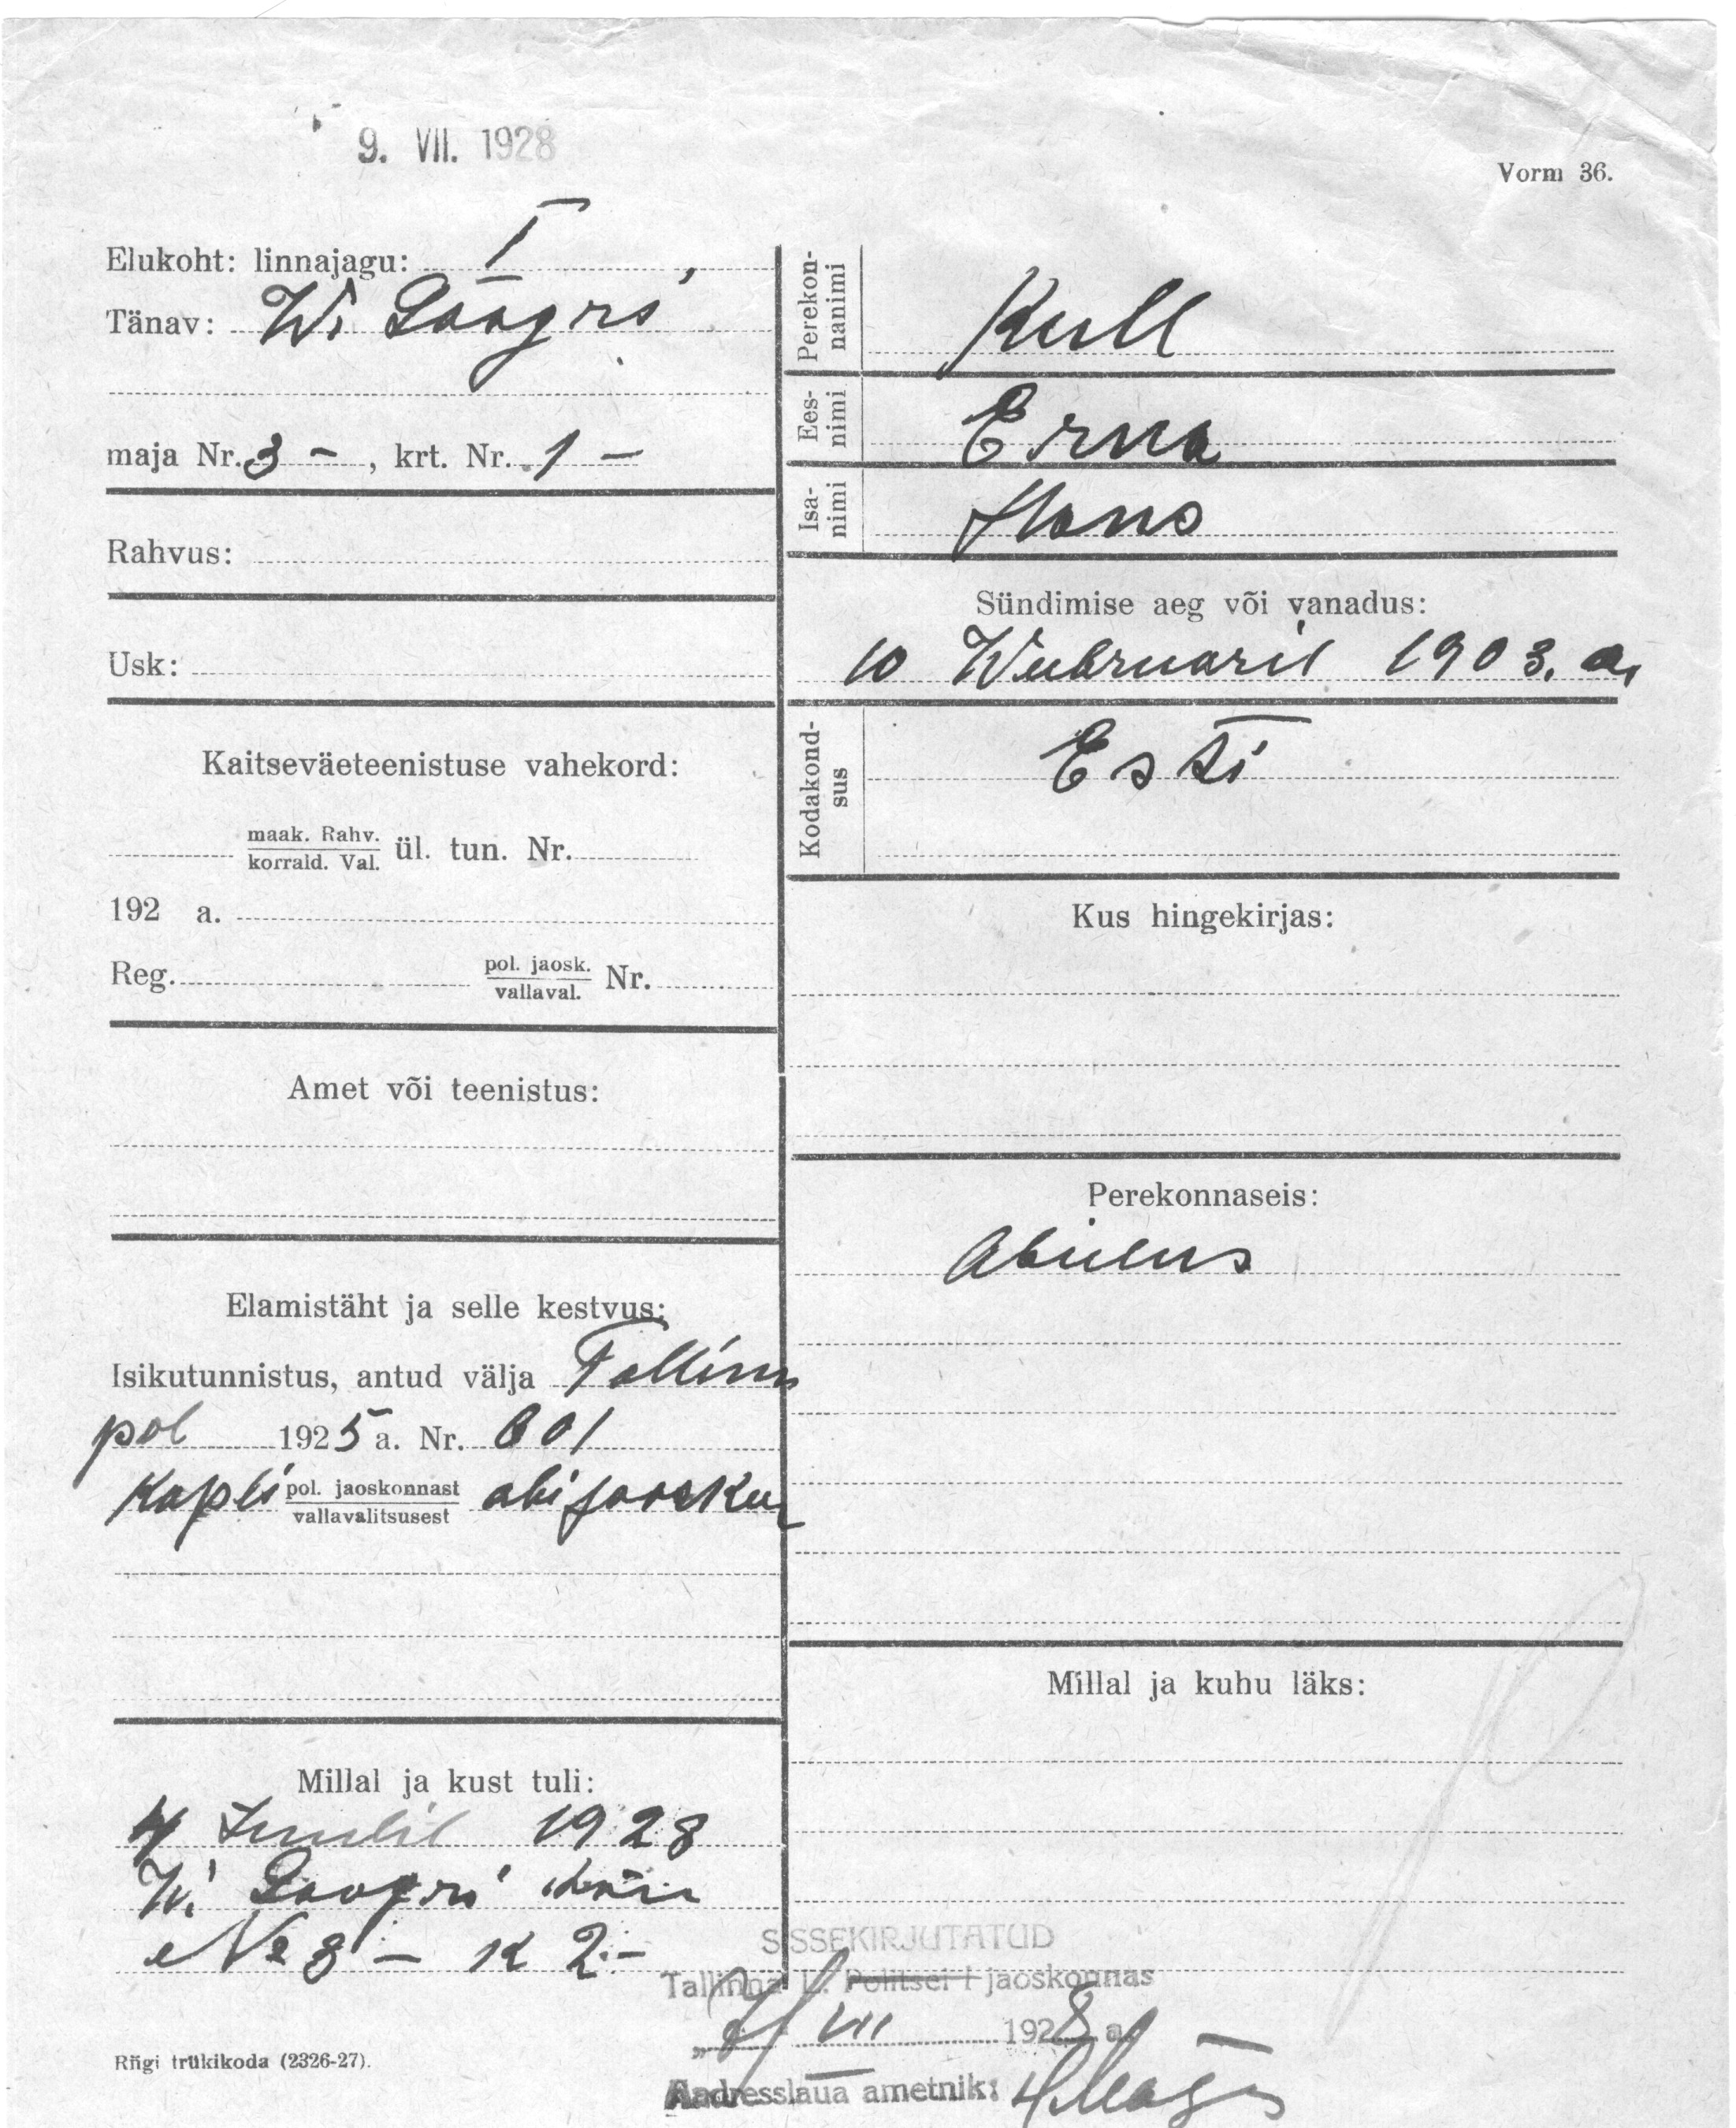 9. VII. 1928
Vorm 36.
Elukoht: linnajagu: I
Tänav: W. Laagri
maja Nr. 3 – , krt. Nr. 1 –
Rahvus:
Usk:
Kaitseväeteenistuse vahekord:
maak. Rahv.
korrald. Val. ül. tun. Nr.
192 a.
Reg. pol. jaosk.
vallaval. Nr.
Amet või teenistus:
Elamistäht ja selle kestvus:
Isikutunnistus, antud välja Tallinn
pol 1925 a. Nr. 601
Kopli pol. jaoskonnast abijaosku
vallavalitsusest
Millal ja kust tuli:
4 Juulil 1928
W. Laagri
No 3 – K 2 –
Riigi trükikoda (2326-27).
Perekon-
nanimi
Kull
Ees-
nimi
Erna
Isa-
nimi
Hans
Sündimise aeg või vanadus:
10 Weebruaril 1903. a.
Kodakond-
sus
Esti
Kus hingekirjas:
Perekonnaseis:
Abielus
Millal ja kuhu läks:
SISSEKIRJUTATUD
Tallinna L. Politsei I jaoskonnas
VII 1928 a.
Aadresslaua ametnik: